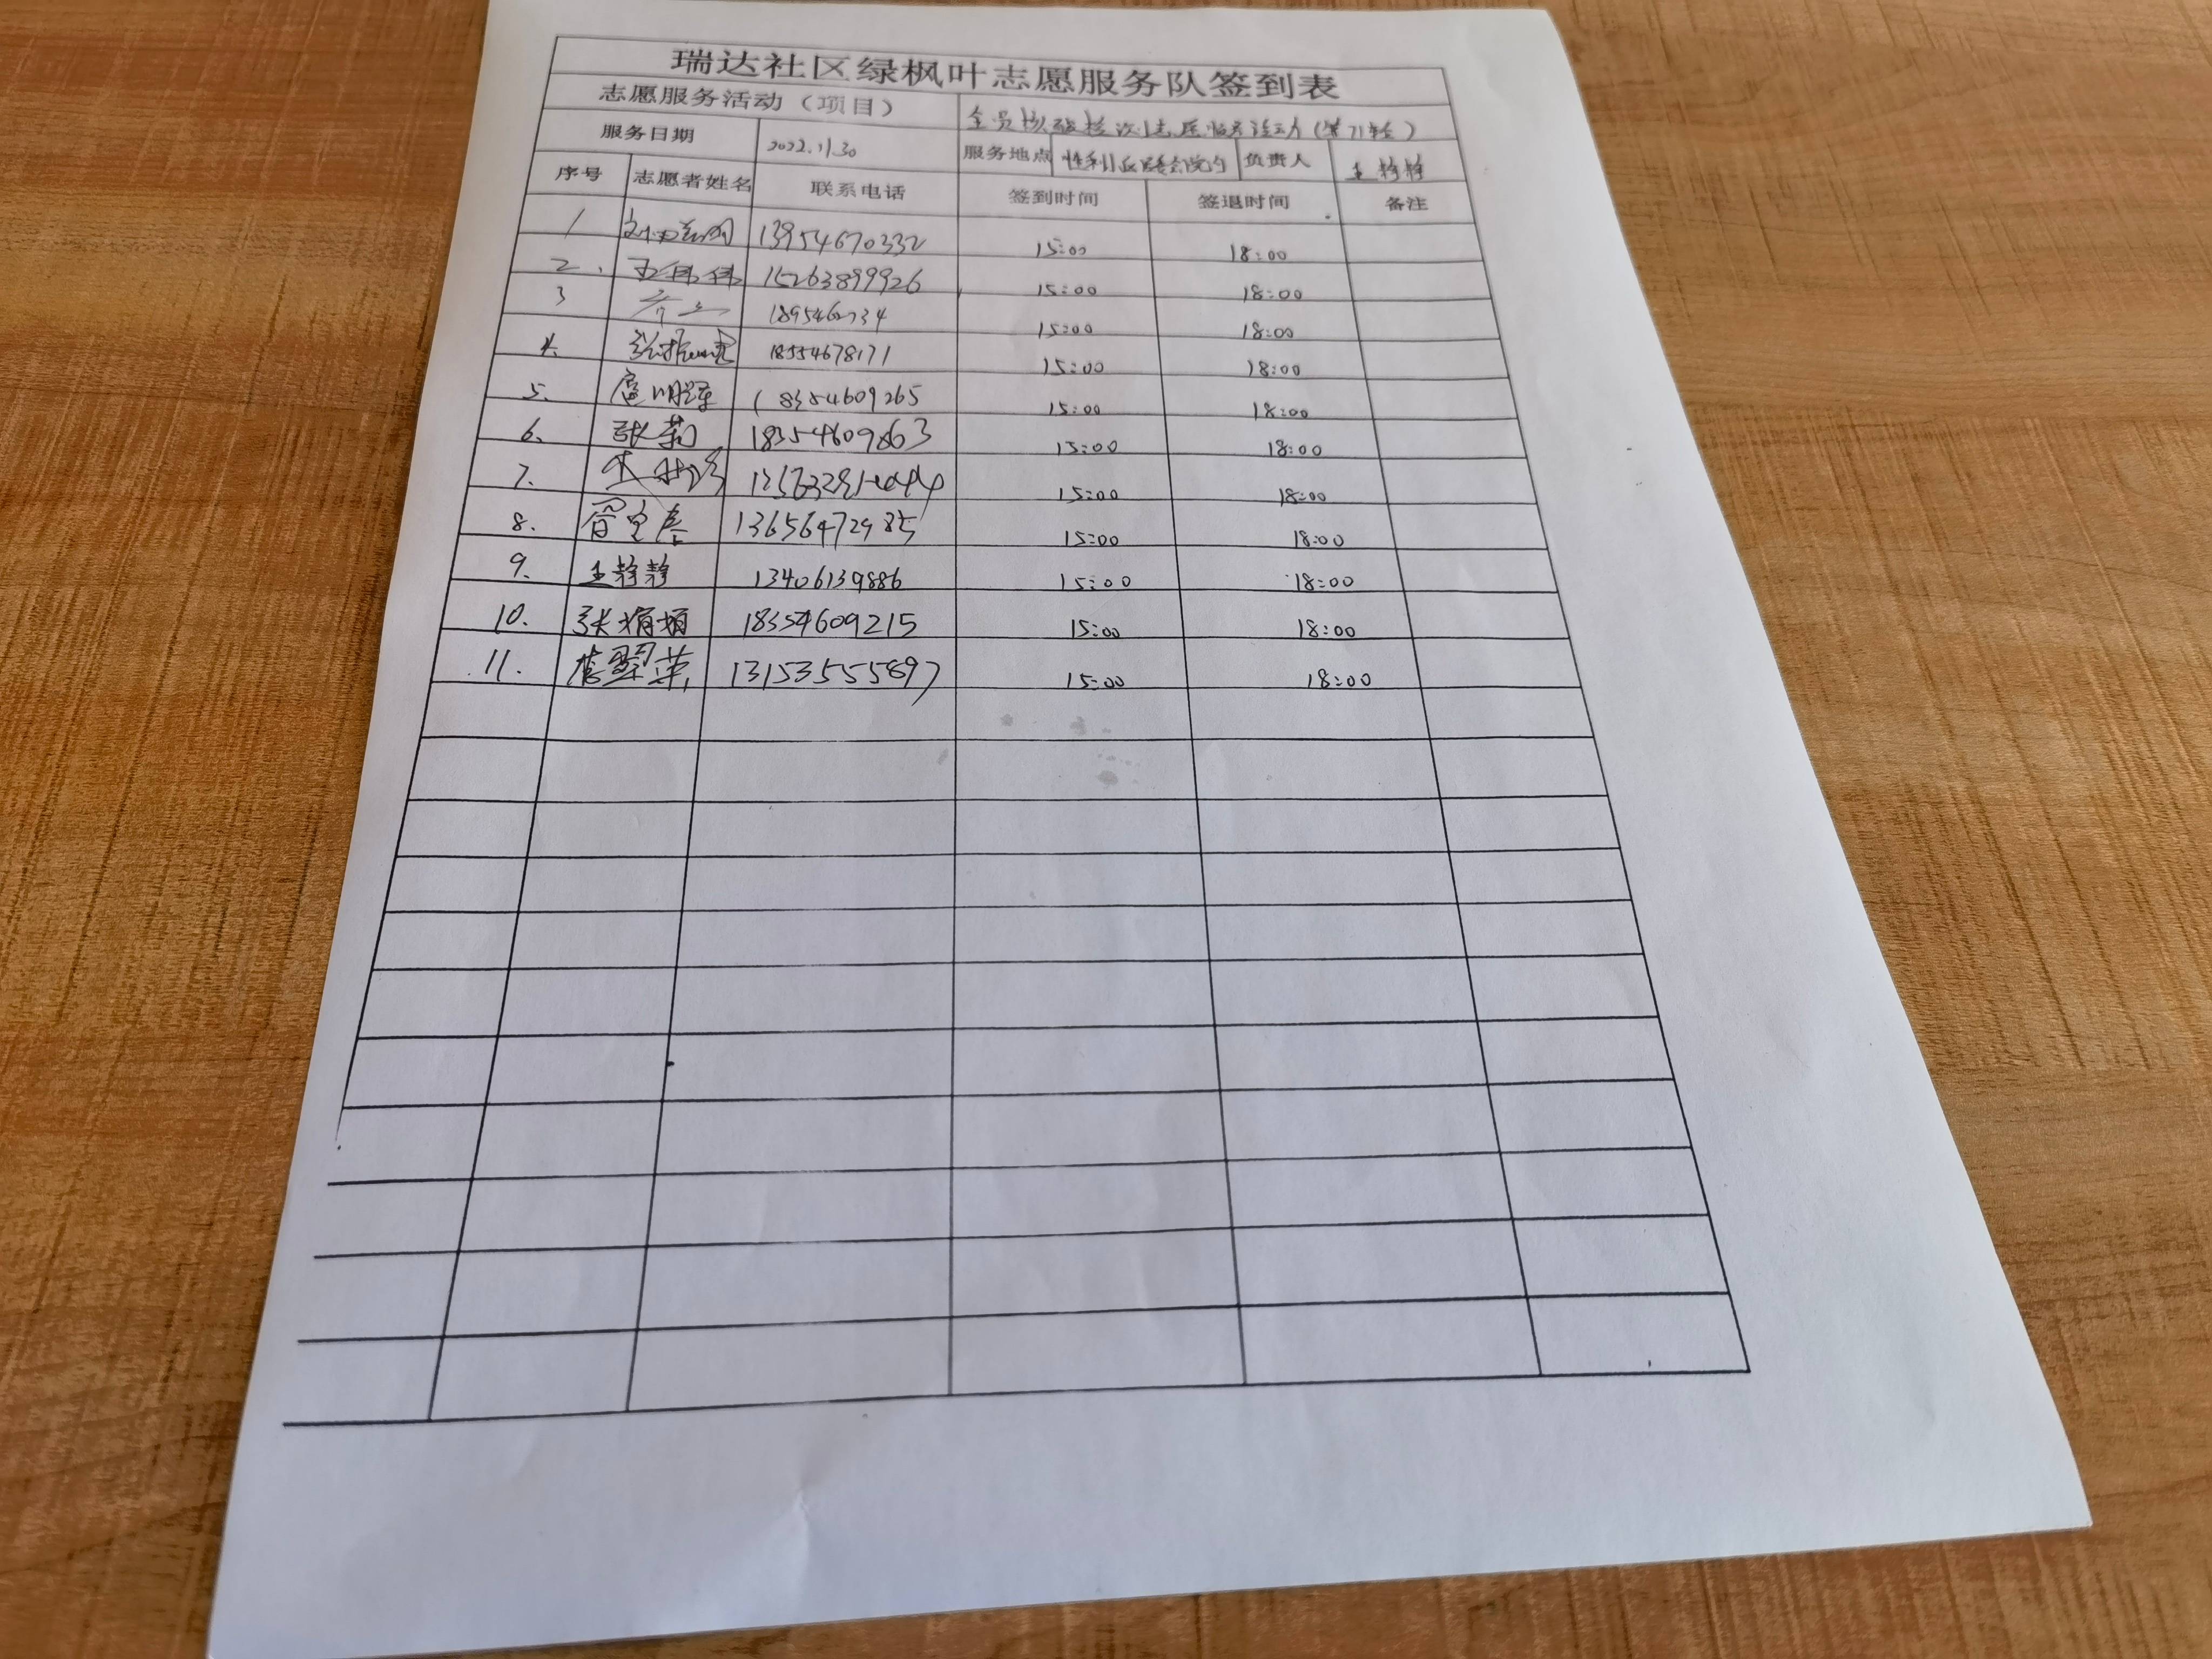 瑞达社区绿枫叶志愿服务队签到表
志愿服务活动（项目） 全员核酸检测志愿服务活动（第71轮）
服务日期 2022.11.30 服务地点 胜利 院内 负责人 王静静
序号 志愿者姓名 联系电话 签到时间 签退时间 备注
1 13954670332 15:00 18:00
2. 王伟伟 15263899926 15:00 18:00
3 15:00 18:00
4. 18554678171 15:00 18:00
5. 18354609265 15:00 18:00
6. 张莉 18354609863 15:00 18:00
7. 15:00 18:00
8. 13656472985 15:00 18:00
9. 王静静 13406139886 15:00 18:00
10. 张娟娟 18354609215 15:00 18:00
11. 翠英 13153555897 15:00 18:00